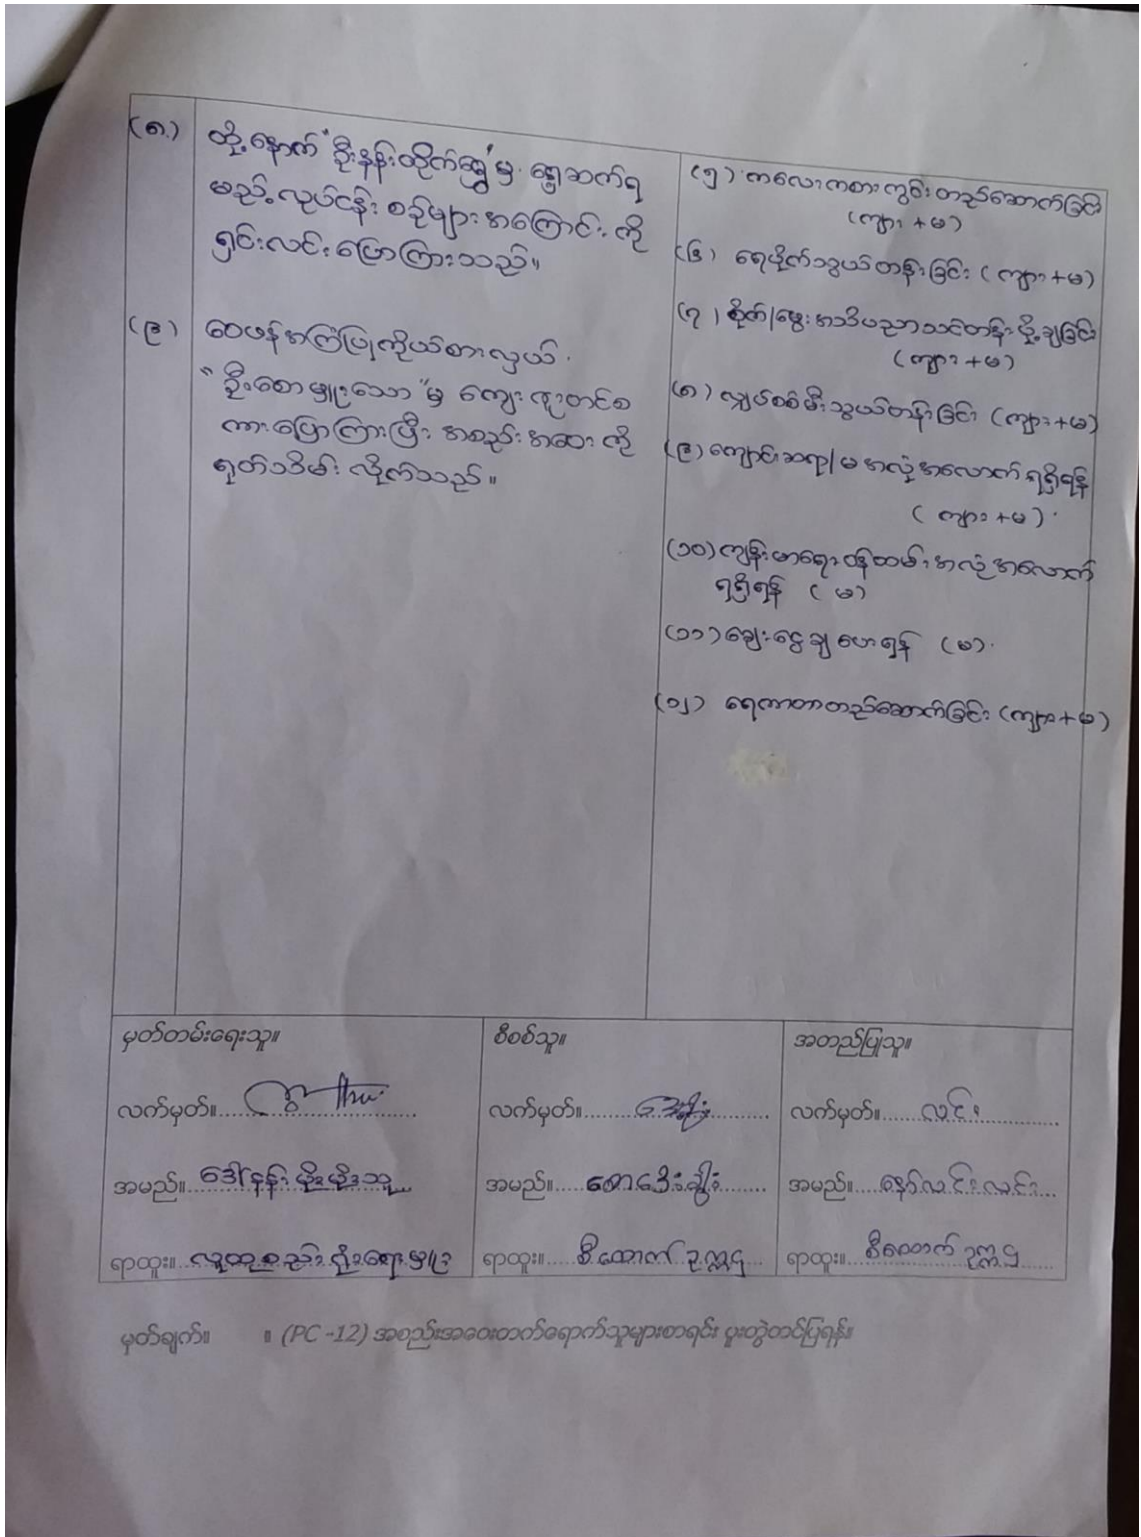 (၈) ထို့နောက် "ဦးနန်းထိုက်ရွှေ" မှ ရှေ့ဆက်ရ
မည့် လုပ်ငန်း စဉ်များ အကြောင်း ကို
ရှင်းလင်း ပြောကြားသည်။
(၉) ဝေဖန်အကြံပြုကိုယ်စားလှယ်
"ဦးစောမျူးသော" မှ ကျေးဇူးတင်စ
ကားပြောကြားပြီး အစည်းအဝေး ကို
ရုတ်သိမ်း လိုက်သည်။
(၅) ကလေးကစားကွင်း တည်ဆောက်ခြင်း
(ကျား + မ)
(၆) ရေပိုက်သွယ်တန်းခြင်း (ကျား + မ)
(၇) စိုက်/မွေး အသိပညာသင်တန်း ပို့ချခြင်း
(ကျား + မ)
(၈) လျှပ်စစ်မီးသွယ်တန်းခြင်း (ကျား + မ)
(၉) ကျောင်းဆရာ/မ အလုံအလောက် ရရှိရန်
(ကျား + မ)
(၁၀) ကျန်းမာရေး ဝန်ထမ်း အလုံအလောက်
ရရှိရန် (မ)
(၁၁) ချေးငွေချပေးရန် (မ)
(၁၂) ရေကာတာတည်ဆောက်ခြင်း (ကျား + မ)
မှတ်တမ်းရေးသူ။ စီစစ်သူ။ အတည်ပြုသူ။
လက်မှတ်။ လက်မှတ်။ လက်မှတ်။ လင်း
အမည်။ ဒေါ်နန်းမိုးမိုးသူ အမည်။ အမည်။ နော်လင်းလင်း
ရာထူး။ လူထုစည်းရုံးရေးမှူး ရာထူး။ စီထောက် ဥက္ကဋ္ဌ ရာထူး။ စီထောက် ဥက္ကဋ္ဌ
မှတ်ချက်။ ။ (PC -12) အစည်းအဝေးတက်ရောက်သူများစာရင်း ပူးတွဲတင်ပြရန်။